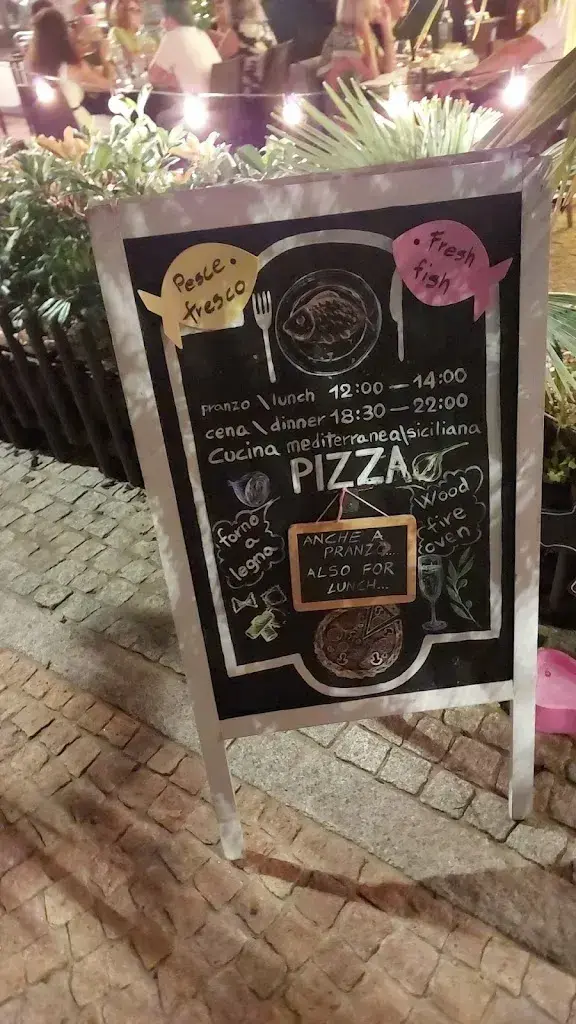 Pesce
fresco
Fresh
fish
pranzo \ lunch 12:00 — 14:00
cena \ dinner 18:30 — 22:00
Cucina mediterranea\siciliana
PIZZA
forno
a
legna
Wood
fire
oven
ANCHE A
PRANZO...
ALSO FOR
LUNCH...